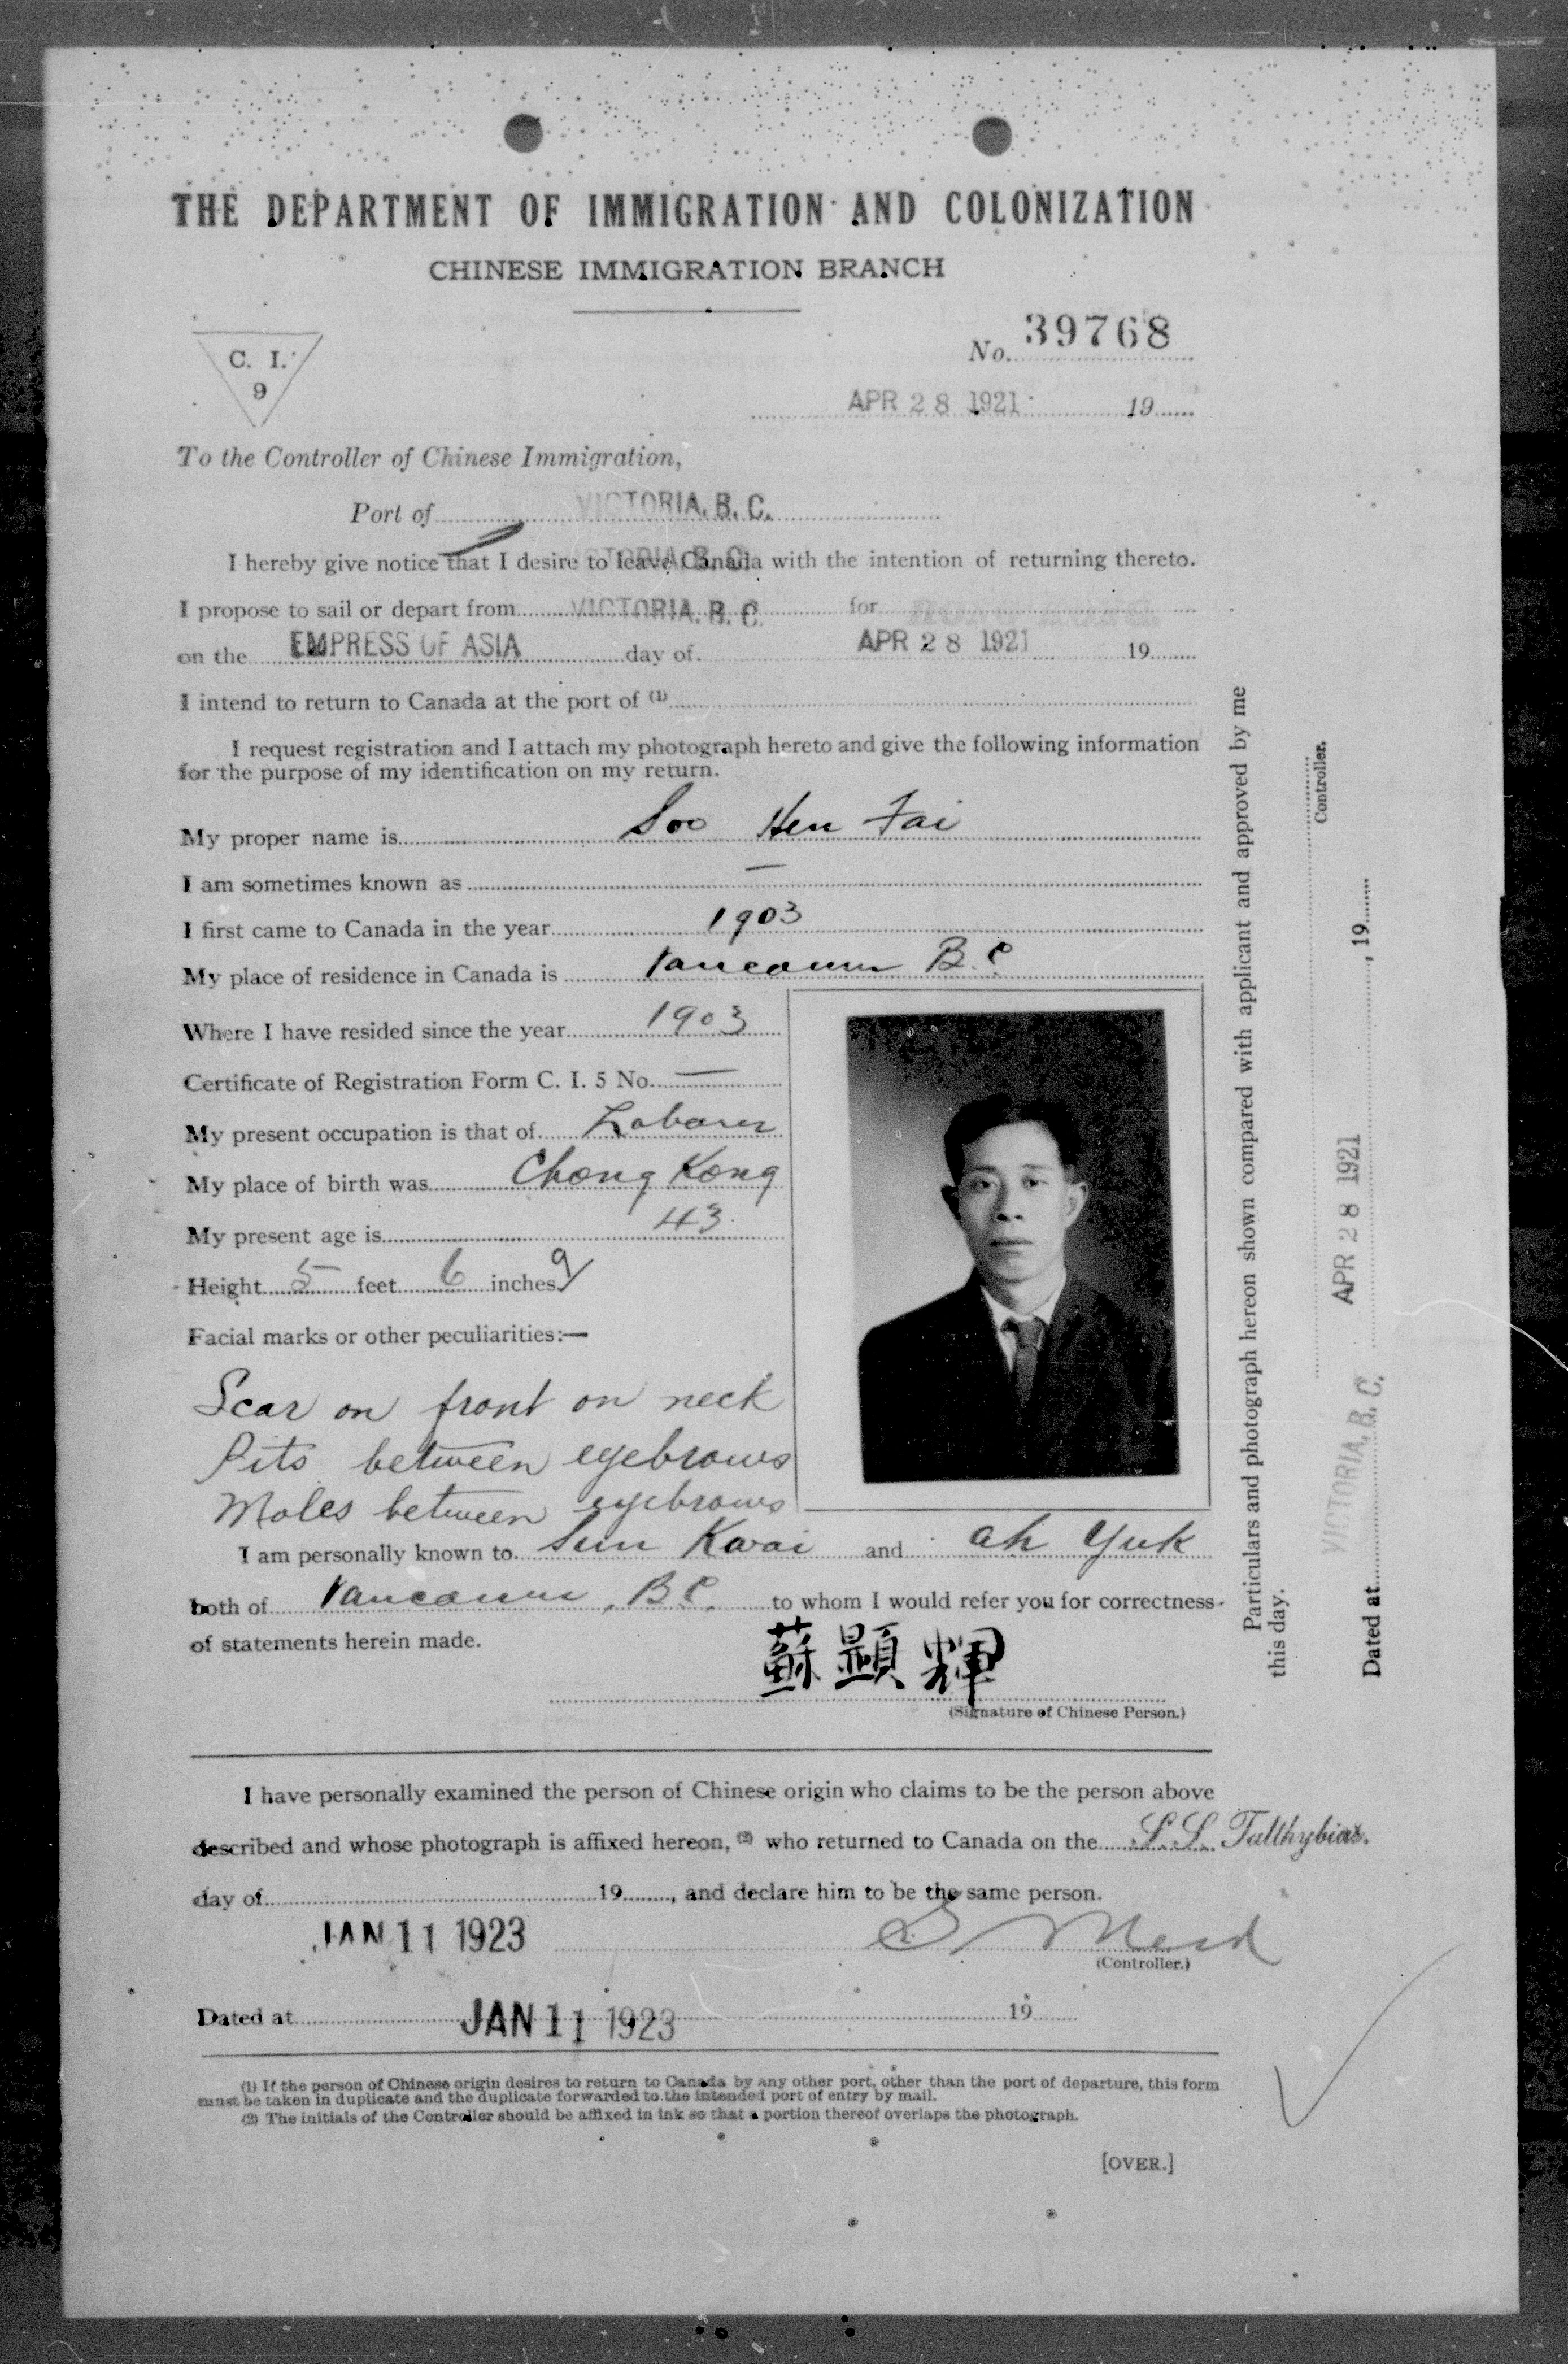 THE DEPARTMENT OF IMMIGRATION AND COLONIZATION
CHINESE IMMIGRATION BRANCH
C. I.
9
No. 39768
APR 28 1921 19
To the Controller of Chinese Immigration,
Port of VICTORIA, B. C.
I hereby give notice that I desire to leave Canada with the intention of returning thereto.
I propose to sail or depart from VICTORIA, B. C. for
on the EMPRESS OF ASIA day of APR 28 1921 19
I intend to return to Canada at the port of (1)
I request registration and I attach my photograph hereto and give the following information
for the purpose of my identification on my return.
My proper name is Soo Hen Fai
I am sometimes known as —
I first came to Canada in the year 1903
My place of residence in Canada is Vancouver B.C
Where I have resided since the year 1903
Certificate of Registration Form C. I. 5 No. —
My present occupation is that of Laborer
My place of birth was Chong Kong
My present age is 43
Height 5 feet 6 inches
Facial marks or other peculiarities:—
Scar on front on neck
Pits between eyebrows
Moles between eyebrows
I am personally known to Sun Kwai and Ah Yuk
both of Vancouver, B.C. to whom I would refer you for correctness
of statements herein made.
蘇顯輝
(Signature of Chinese Person.)
I have personally examined the person of Chinese origin who claims to be the person above
described and whose photograph is affixed hereon, (2) who returned to Canada on the S.S. Talthybius.
day of 19, and declare him to be the same person.
JAN 11 1923
(Controller.)
Dated at JAN 11 1923 19
(1) If the person of Chinese origin desires to return to Canada by any other port, other than the port of departure, this form
must be taken in duplicate and the duplicate forwarded to the intended port of entry by mail.
(2) The initials of the Controller should be affixed in ink so that a portion thereof overlaps the photograph.
[OVER.]
Particulars and photograph hereon shown compared with applicant and approved by me
this day.
Controller.
Dated at VICTORIA, B. C. APR 28 1921, 19